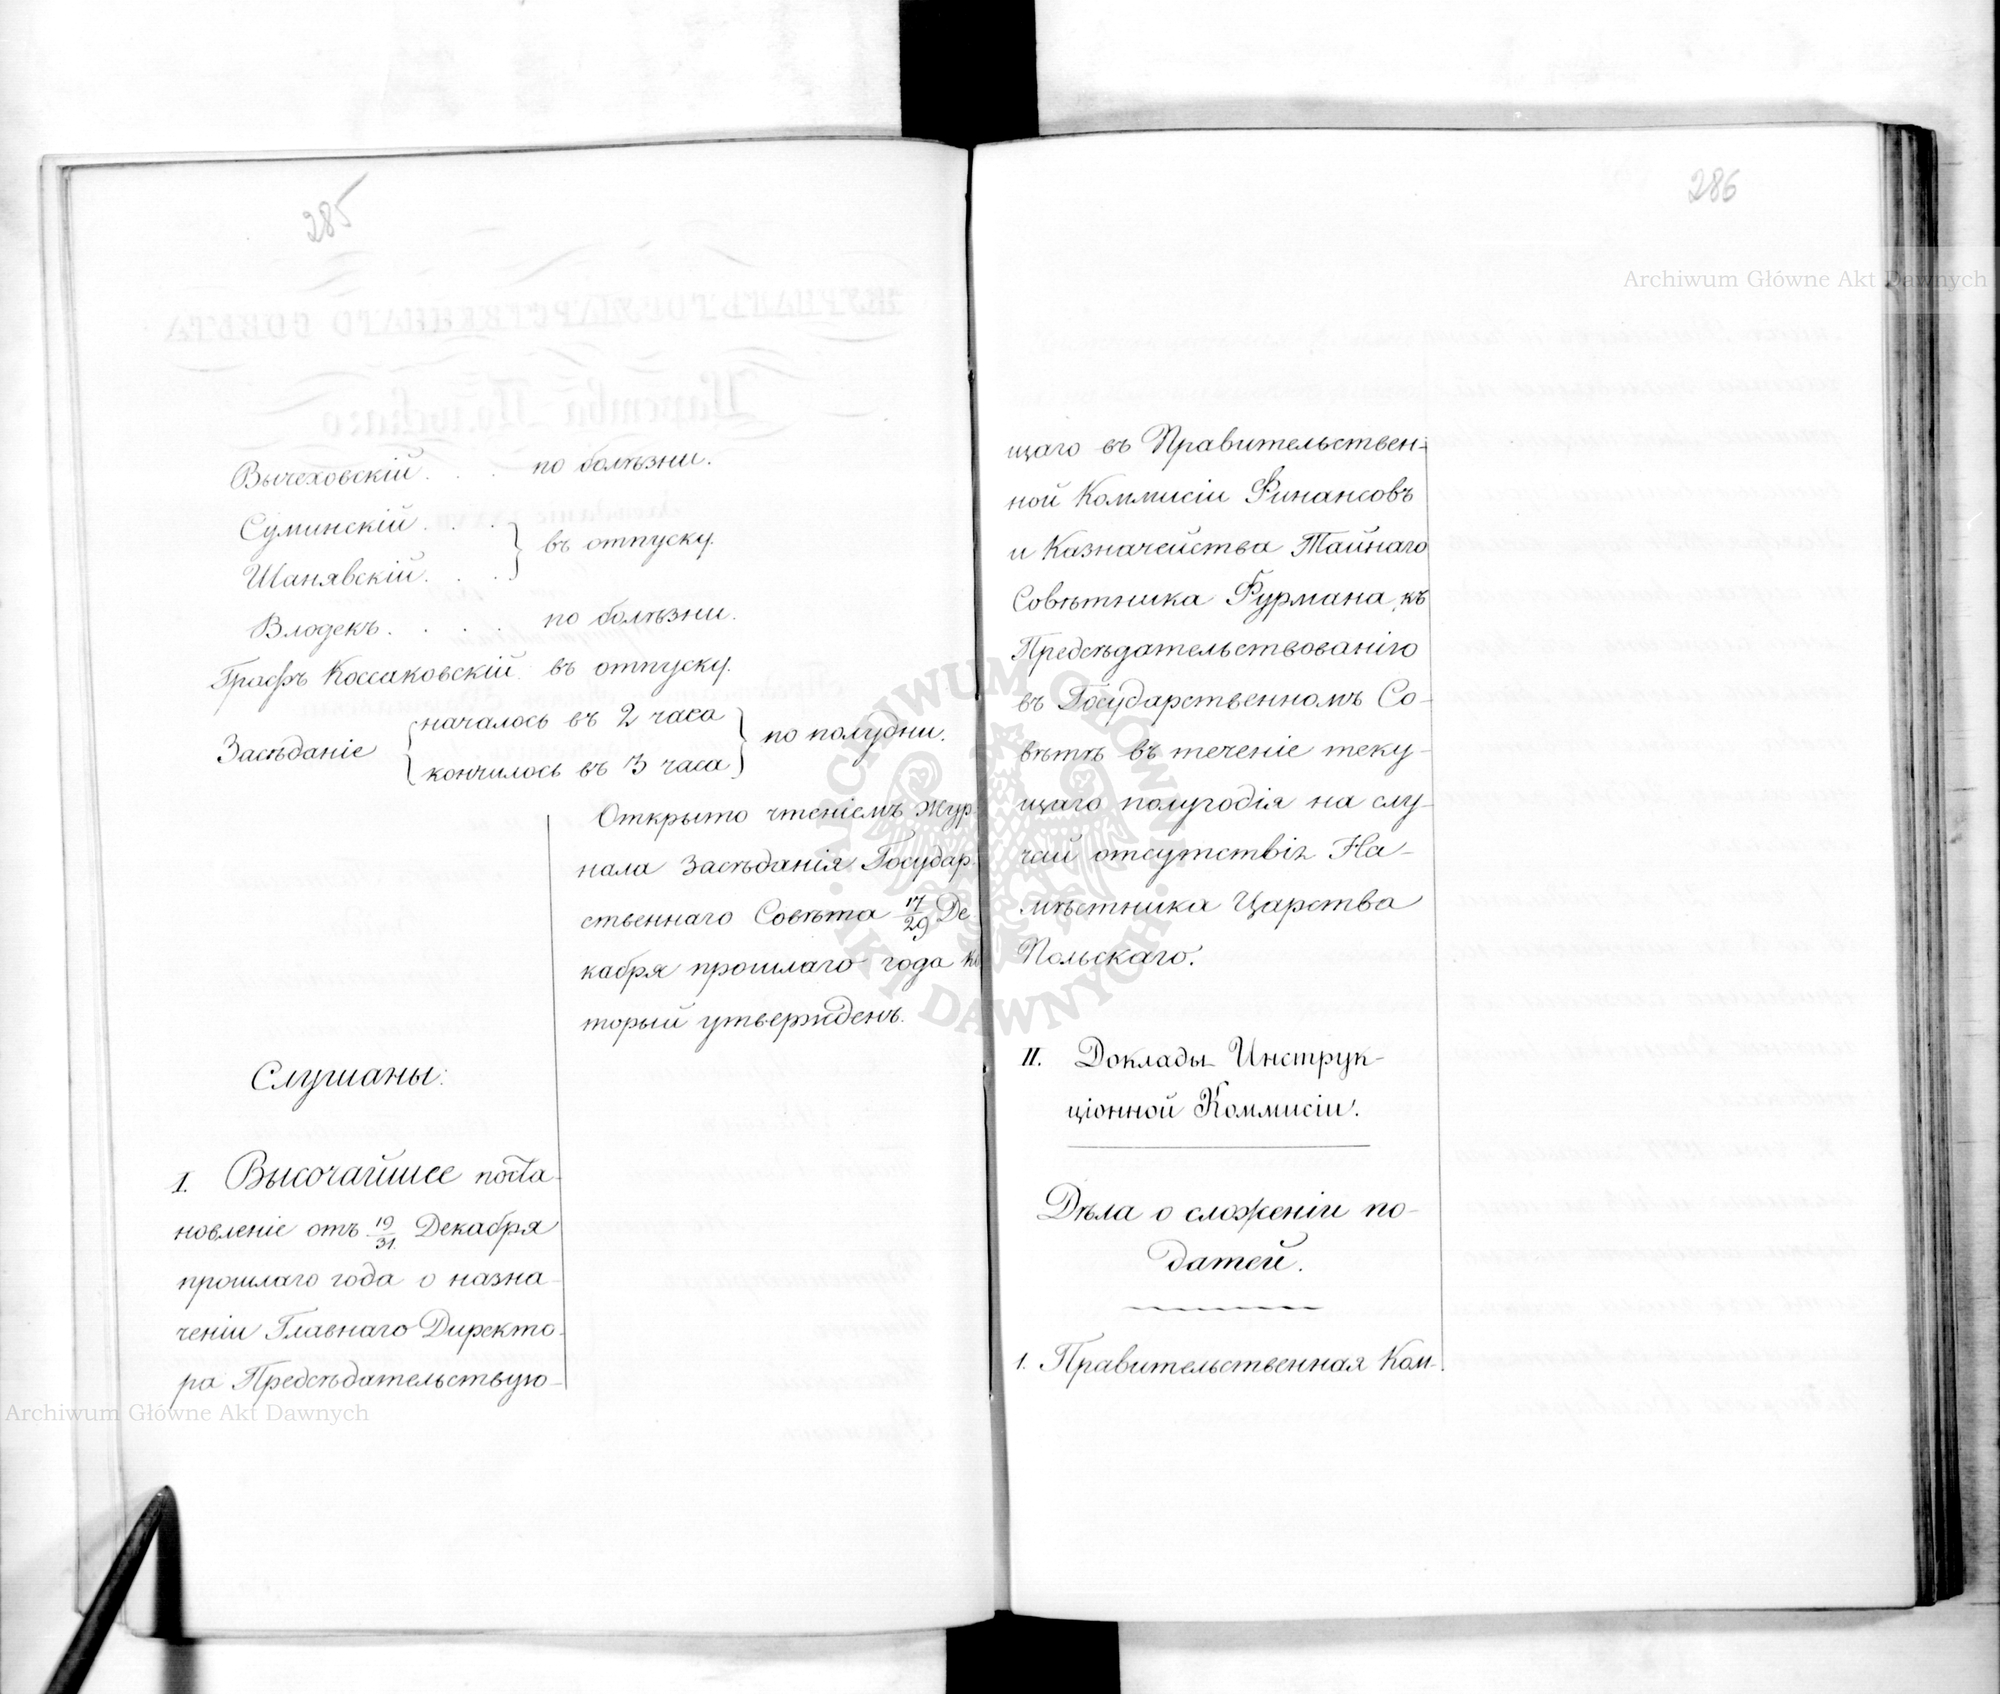 285
Вычеховскій . . . по болѣзни.
Суминскій . . .
Шанявскій . . . } въ отпуску.
Влодекъ . . . по болѣзни.
Графъ Коссаковскій въ отпуску.
Засѣданіе { началось въ 2 часа } по полудни.
кончилось въ 3 часа
Открыто чтеніемъ Жур
нала Засѣданія Государ
ственнаго Совѣта 17/29 Де
кабря прошлаго года ко
торый утвержденъ.
Слушаны:
I. Высочайшее поста-
новленіе отъ 19/31 Декабря
прошлаго года о назна-
ченіи Главнаго Директо-
ра Предсѣдательствую-
286
щаго въ Правительствен-
ной Коммисіи Финансовъ
и Казначейства Тайнаго
Совѣтника Фурмана, къ
Предсѣдательствованію
въ Государственномъ Со-
вѣтѣ въ теченіе теку-
щаго полугодія на слу-
чай отсутствія На-
мѣстника Царства
Польскаго.
II. Доклады Инструк-
ціонной Коммисіи.
Дѣла о сложеніи по-
датей.
1. Правительственная Ком-
Archiwum Główne Akt Dawnych
Archiwum Główne Akt Dawnych
ARCHIWUM GŁÓWNE AKT DAWNYCH